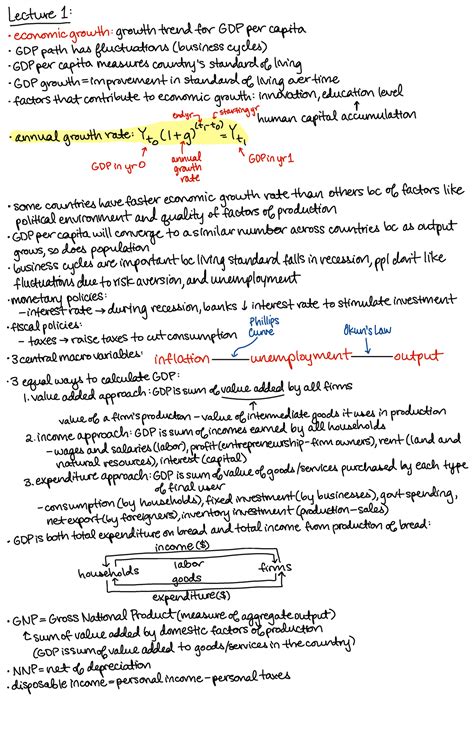 Lecture 1:
• economic growth: growth trend for GDP per capita
• GDP path has fluctuations (business cycles)
• GDP per capita measures country's standard of living
• GDP growth = improvement in standard of living over time
• factors that contribute to economic growth: innovation, education level
human capital accumulation
endyr
starting yr
• annual growth rate: Yt₀ (1+g)^(t₁-t₀) = Yt₁
GDP in yr 0
annual growth rate
GDP in yr 1
• some countries have faster economic growth rate than others bc of factors like
political environment and quality of factors of production
• GDP per capita will converge to a similar number across countries bc as output
grows, so does population
• business cycles are important bc living standard falls in recession, ppl don't like
fluctuations due to risk aversion, and unemployment
• monetary policies:
– interest rate → during recession, banks ↓ interest rate to stimulate investment
• fiscal policies:
– taxes → raise taxes to cut consumption
Phillips Curve
Okun's Law
• 3 central macro variables: inflation — unemployment — output
• 3 equal ways to calculate GDP:
1. value added approach: GDP is sum of value added by all firms
value of a firm's production – value of intermediate goods it uses in production
2. income approach: GDP is sum of incomes earned by all households
– wages and salaries (labor), profit (entrepreneurship-firm owners), rent (land and
natural resources), interest (capital)
3. expenditure approach: GDP is sum of value of goods/services purchased by each type
of final user
– consumption (by households), fixed investment (by businesses), govt spending,
net export (by foreigners), inventory investment (production-sales)
• GDP is both total expenditure on bread and total income from production of bread:
income ($)
labor
households
firms
goods
expenditure ($)
• GNP = Gross National Product (measure of aggregate output)
↑ sum of value added by domestic factors of production
(GDP is sum of value added to goods/services in the country)
• NNP = net of depreciation
• disposable income = personal income – personal taxes